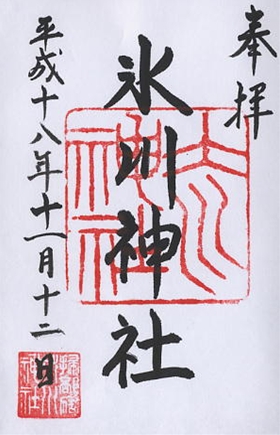 奉拝
氷川神社
平成十八年十一月十二日
氷川神社